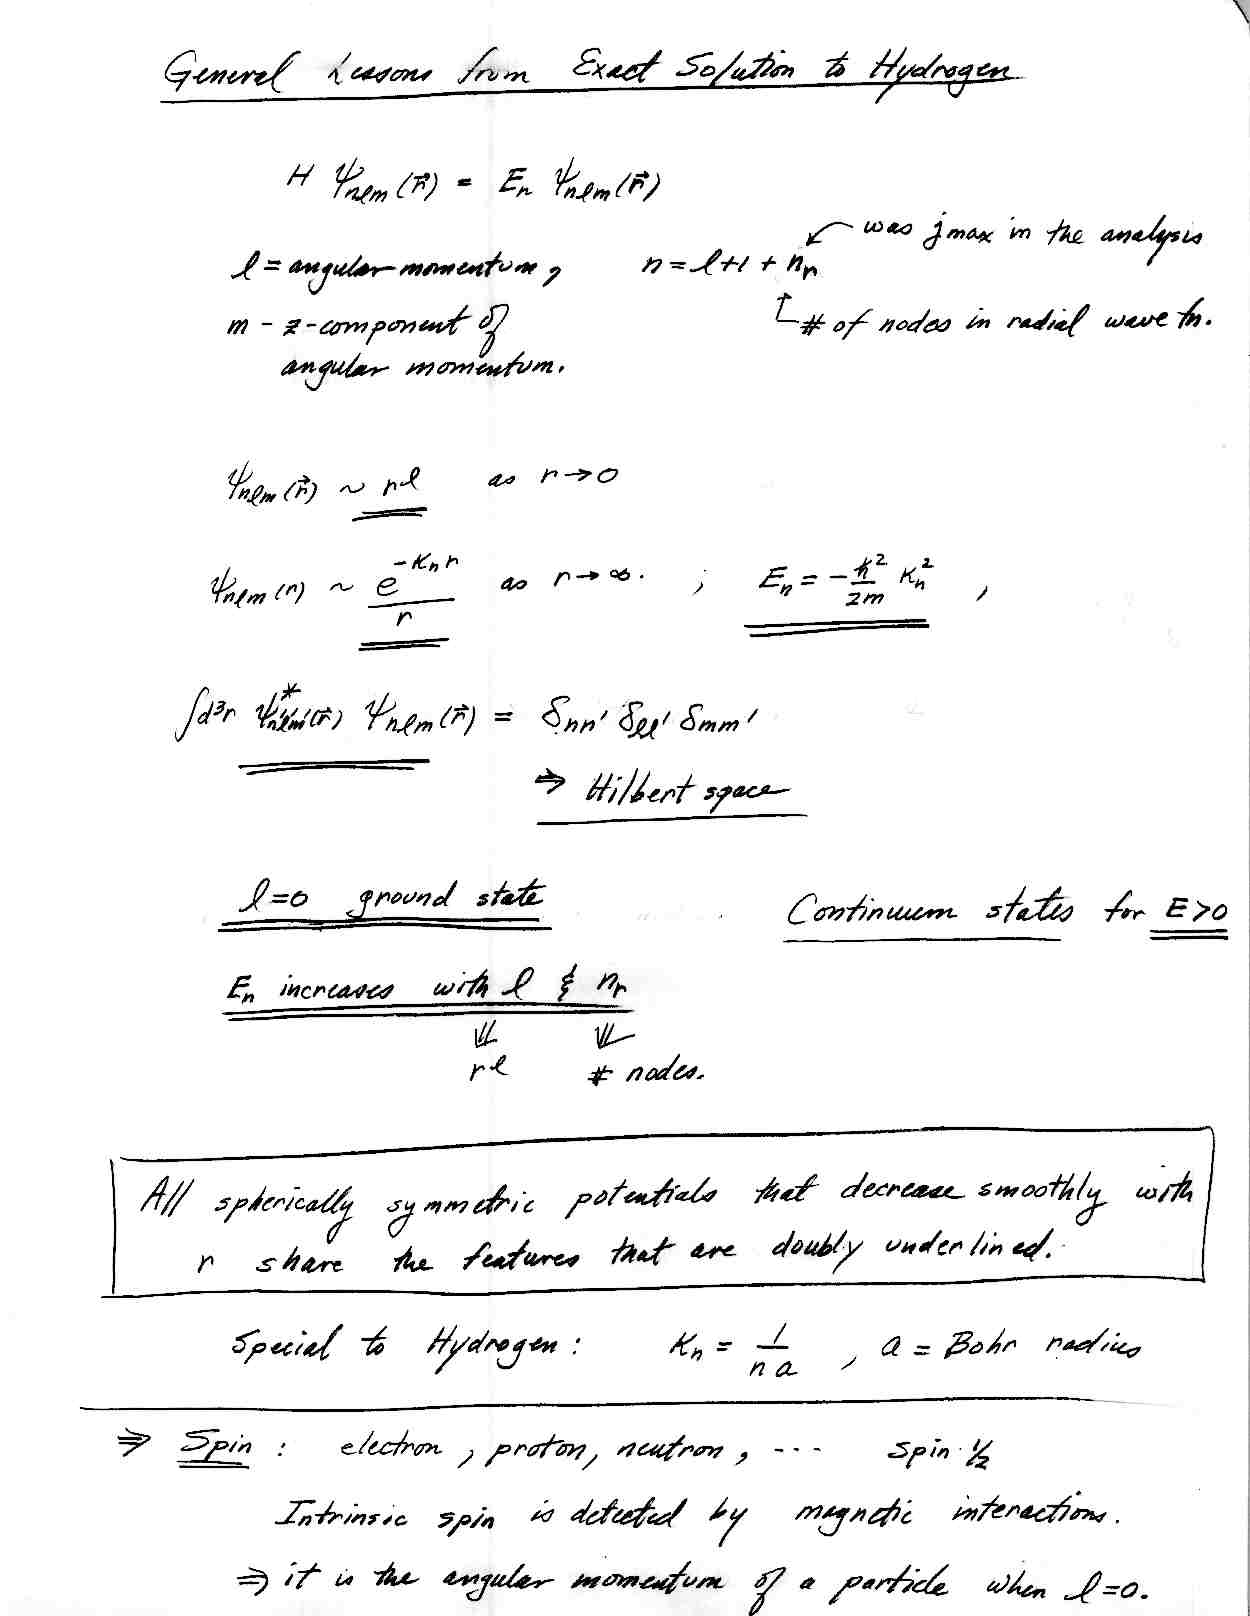 General Lessons from Exact Solution to Hydrogen
H ψnlm(r⃗) = En ψnlm(r⃗)
was jmax in the analysis
l = angular momentum, n = l+1 + nr
m - z-component of
# of nodes in radial wave fn.
angular momentum.
ψnlm(r⃗) ~ r^l as r→0
ψnlm(r) ~ e^{-κn r}/r as r→∞. ; En = -ℏ²/2m κn² ,
∫d³r ψ*n'l'm'(r⃗) ψnlm(r⃗) = δnn' δll' δmm'
⇒ Hilbert space
l=0 ground state
Continuum states for E>0
En increases with l & nr
r^l # nodes.
All spherically symmetric potentials that decrease smoothly with
r share the features that are doubly underlined.
Special to Hydrogen: κn = 1/na , a = Bohr radius
⇒ Spin: electron, proton, neutron, --- spin 1/2
Intrinsic spin is detected by magnetic interactions.
⇒ it is the angular momentum of a particle when l=0.